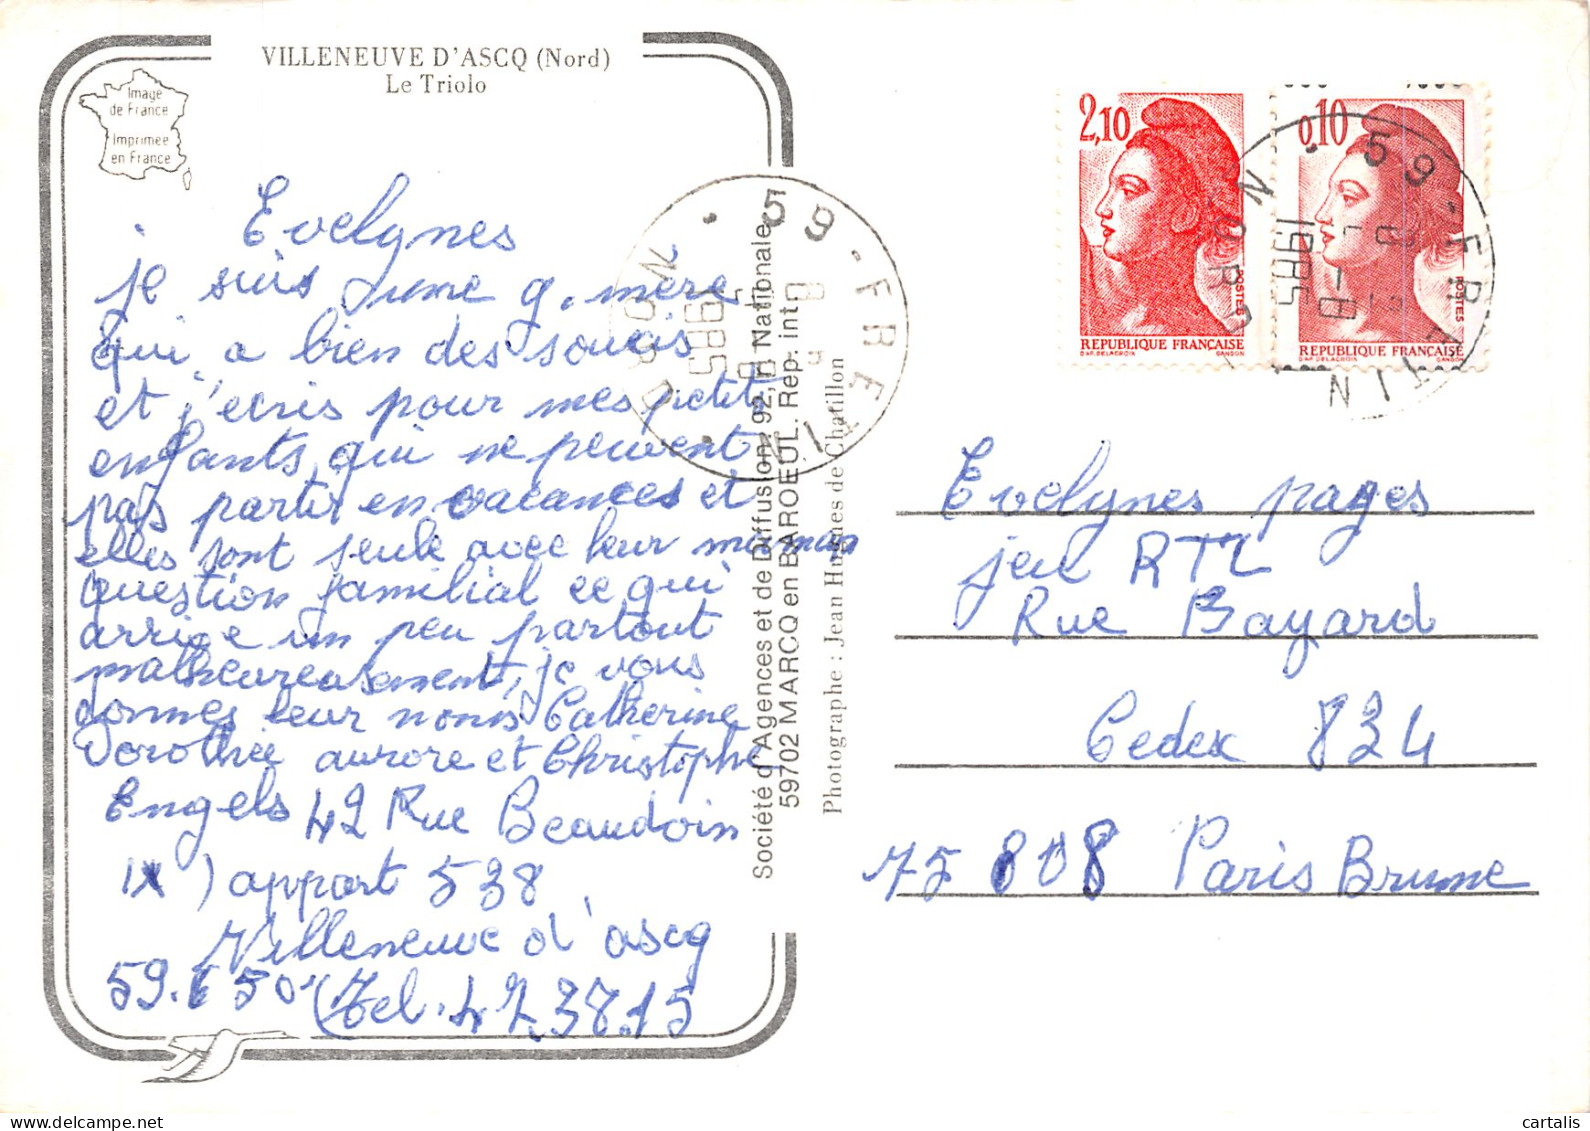 VILLENEUVE D'ASCQ (Nord)
Le Triolo
Image
de France
Imprimée
en France
Evelynes
je suis une g. mère
qui a bien des soucis
et j'ecris pour mes petits
enfants qui ne peuvent
pas partir en vacances et
elles sont seule avec leur maman
question familial ce qui
arrive un peu partout
malheureusement, je vous
donnes leur noms Catherine
Dorothée aurore et Christophe
Engels 42 Rue Beaudoin
IX) appart 538
Villeneuve d'ascq
59.650 (Tel. 47.38.15
Société d'Agences et de Diffusion, 92, r. Nationale
59702 MARCQ en BAROEUL. Rep. int.
Photographe : Jean Hugues de Chatillon
59 - FRETIN
NORD
1985
2,10
POSTES
REPUBLIQUE FRANÇAISE
D'AP. DELACROIX GANDON
0,10
POSTES
REPUBLIQUE FRANÇAISE
D'AP. DELACROIX GANDON
59 - FRETIN
NORD
1985
Evelynes pages
jeu RTL
Rue Bayard
Cedex 824
75 808 Paris Brune
cartalis